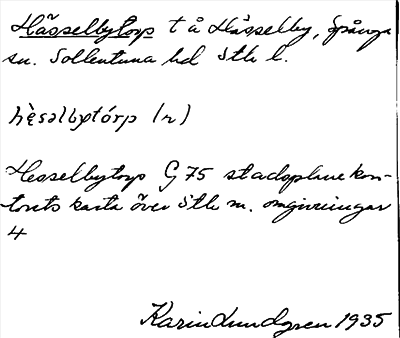 Hässelbytorp t å Hässelby, Spånga
sn. Sollentuna hd Sthlm l.
hèsəlbytórp (r)
Hesselbytorp G 75 stadsplanekon-
torets karta över Sthlm m. omgivningar
4
Karin Lundgren 1935